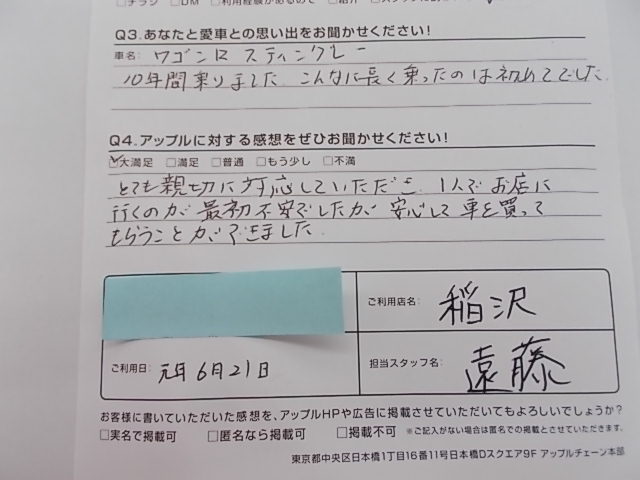 □チラシ □DM □利用経験があるので □紹介
Q3.あなたと愛車との思い出をお聞かせください!
車名: ワゴンR スティングレー
10年間乗りました こんなに長く乗ったのは初めてでした
Q4.アップルに対する感想をぜひお聞かせください!
☑大満足 □満足 □普通 □もう少し □不満
とても親切に対応していただき 1人でお店に
行くのが最初不安でしたが 安心して車を買って
もらうことができました
ご利用店名: 稲沢
ご利用日: 元年6月21日
担当スタッフ名: 遠藤
お客様に書いていただいた感想を、アップルHPや広告に掲載させていただいてもよろしいでしょうか?
□実名で掲載可 □匿名なら掲載可 □掲載不可 ※ご記入がない場合は匿名での掲載とさせていただきます。
東京都中央区日本橋1丁目16番11号日本橋Dスクエア9F アップルチェーン本部